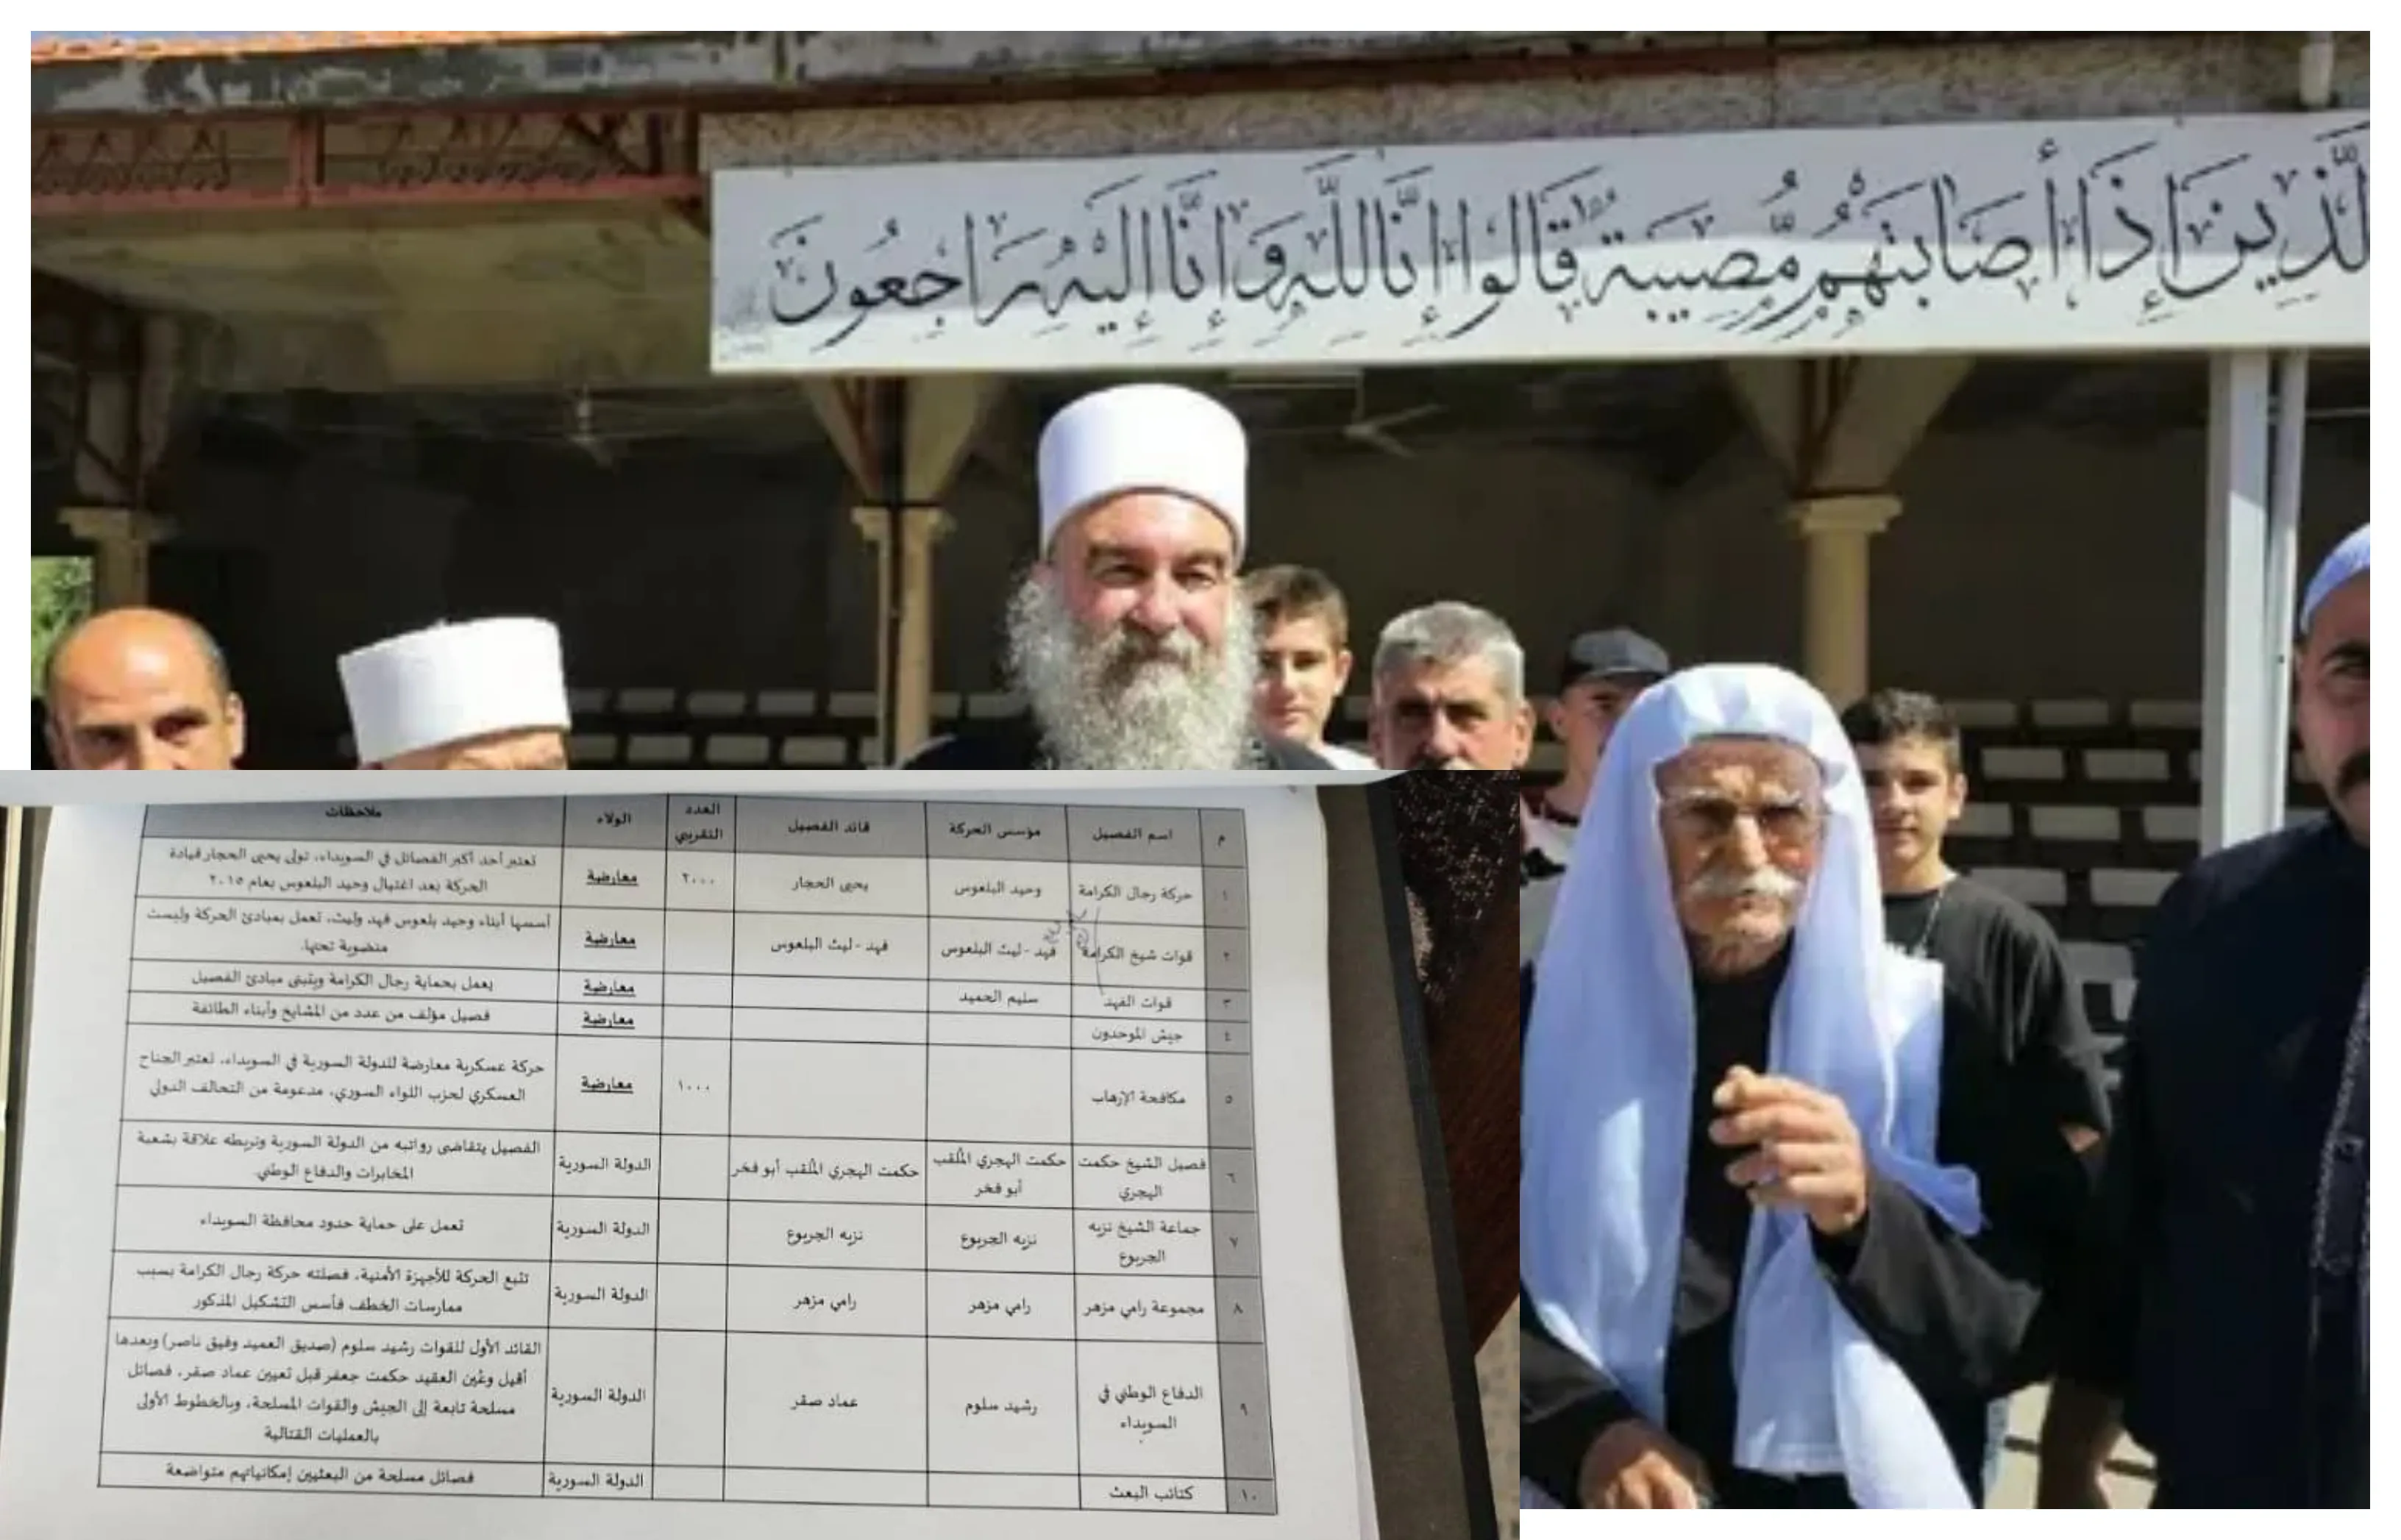 لَّذِينَ إِذَا أَصَابَتْهُم مُّصِيبَةٌ قَالُوا إِنَّا لِلَّهِ وَإِنَّا إِلَيْهِ رَاجِعُونَ
م اسم الفصيل مؤسس الحركة قائد الفصيل العدد التقريبي الولاء ملاحظات
١ حركة رجال الكرامة وحيد البلعوس يحيى الحجار ٢٠٠٠ معارضة تعتبر أحد أكبر الفصائل في السويداء، تولى يحيى الحجار قيادة
الحركة بعد اغتيال وحيد البلعوس بعام ٢٠١٥
٢ قوات شيخ الكرامة فهد - ليث البلعوس فهد - ليث البلعوس معارضة أسسها أبناء وحيد بلعوس فهد وليث، تعمل بمبادئ الحركة وليست
منضوية تحتها.
٣ قوات الفهد سليم الحميد معارضة يعمل بحماية رجال الكرامة ويتبنى مبادئ الفصيل
٤ جيش الموحدون معارضة فصيل مؤلف من عدد من المشايخ وأبناء الطائفة
٥ مكافحة الإرهاب ١٠٠٠ معارضة حركة عسكرية معارضة للدولة السورية في السويداء، تعتبر الجناح
العسكري لحزب اللواء السوري، مدعومة من التحالف الدولي
٦ فصيل الشيخ حكمت الهجري حكمت الهجري الملقب أبو فخر حكمت الهجري الملقب أبو فخر الدولة السورية الفصيل يتقاضى رواتبه من الدولة السورية وتربطه علاقة بشعبة
المخابرات والدفاع الوطني.
٧ جماعة الشيخ نزيه الجربوع نزيه الجربوع نزيه الجربوع الدولة السورية تعمل على حماية حدود محافظة السويداء
٨ مجموعة رامي مزهر رامي مزهر رامي مزهر الدولة السورية تتبع الحركة للأجهزة الأمنية، فصلته حركة رجال الكرامة بسبب
ممارسات الخطف فأسس التشكيل المذكور
٩ الدفاع الوطني في السويداء رشيد سلوم عماد صقر الدولة السورية القائد الأول للقوات رشيد سلوم (صديق العميد وفيق ناصر) وبعدها
أقيل وعُين العقيد حكمت جعفر قبل تعيين عماد صقر، فصائل
مسلحة تابعة إلى الجيش والقوات المسلحة، وبالخطوط الأولى
بالعمليات القتالية
١٠ كتائب البعث الدولة السورية فصائل مسلحة من البعثيين إمكانياتهم متواضعة